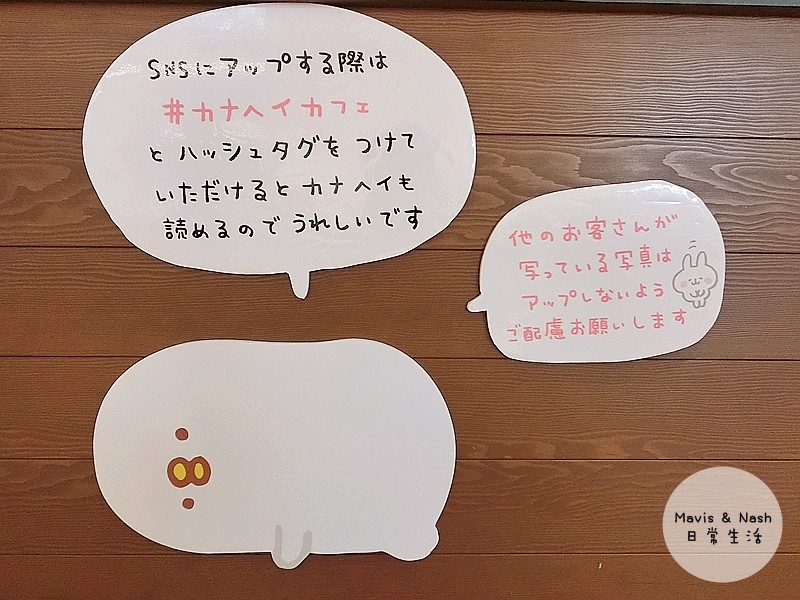 SNSにアップする際は
#カナヘイカフェ
と ハッシュタグを つけて
いただけると カナヘイも
読めるので うれしいです
他のお客さんが
写っている写真は
アップしないよう
ご配慮お願いします
Mavis & Nash
日常生活